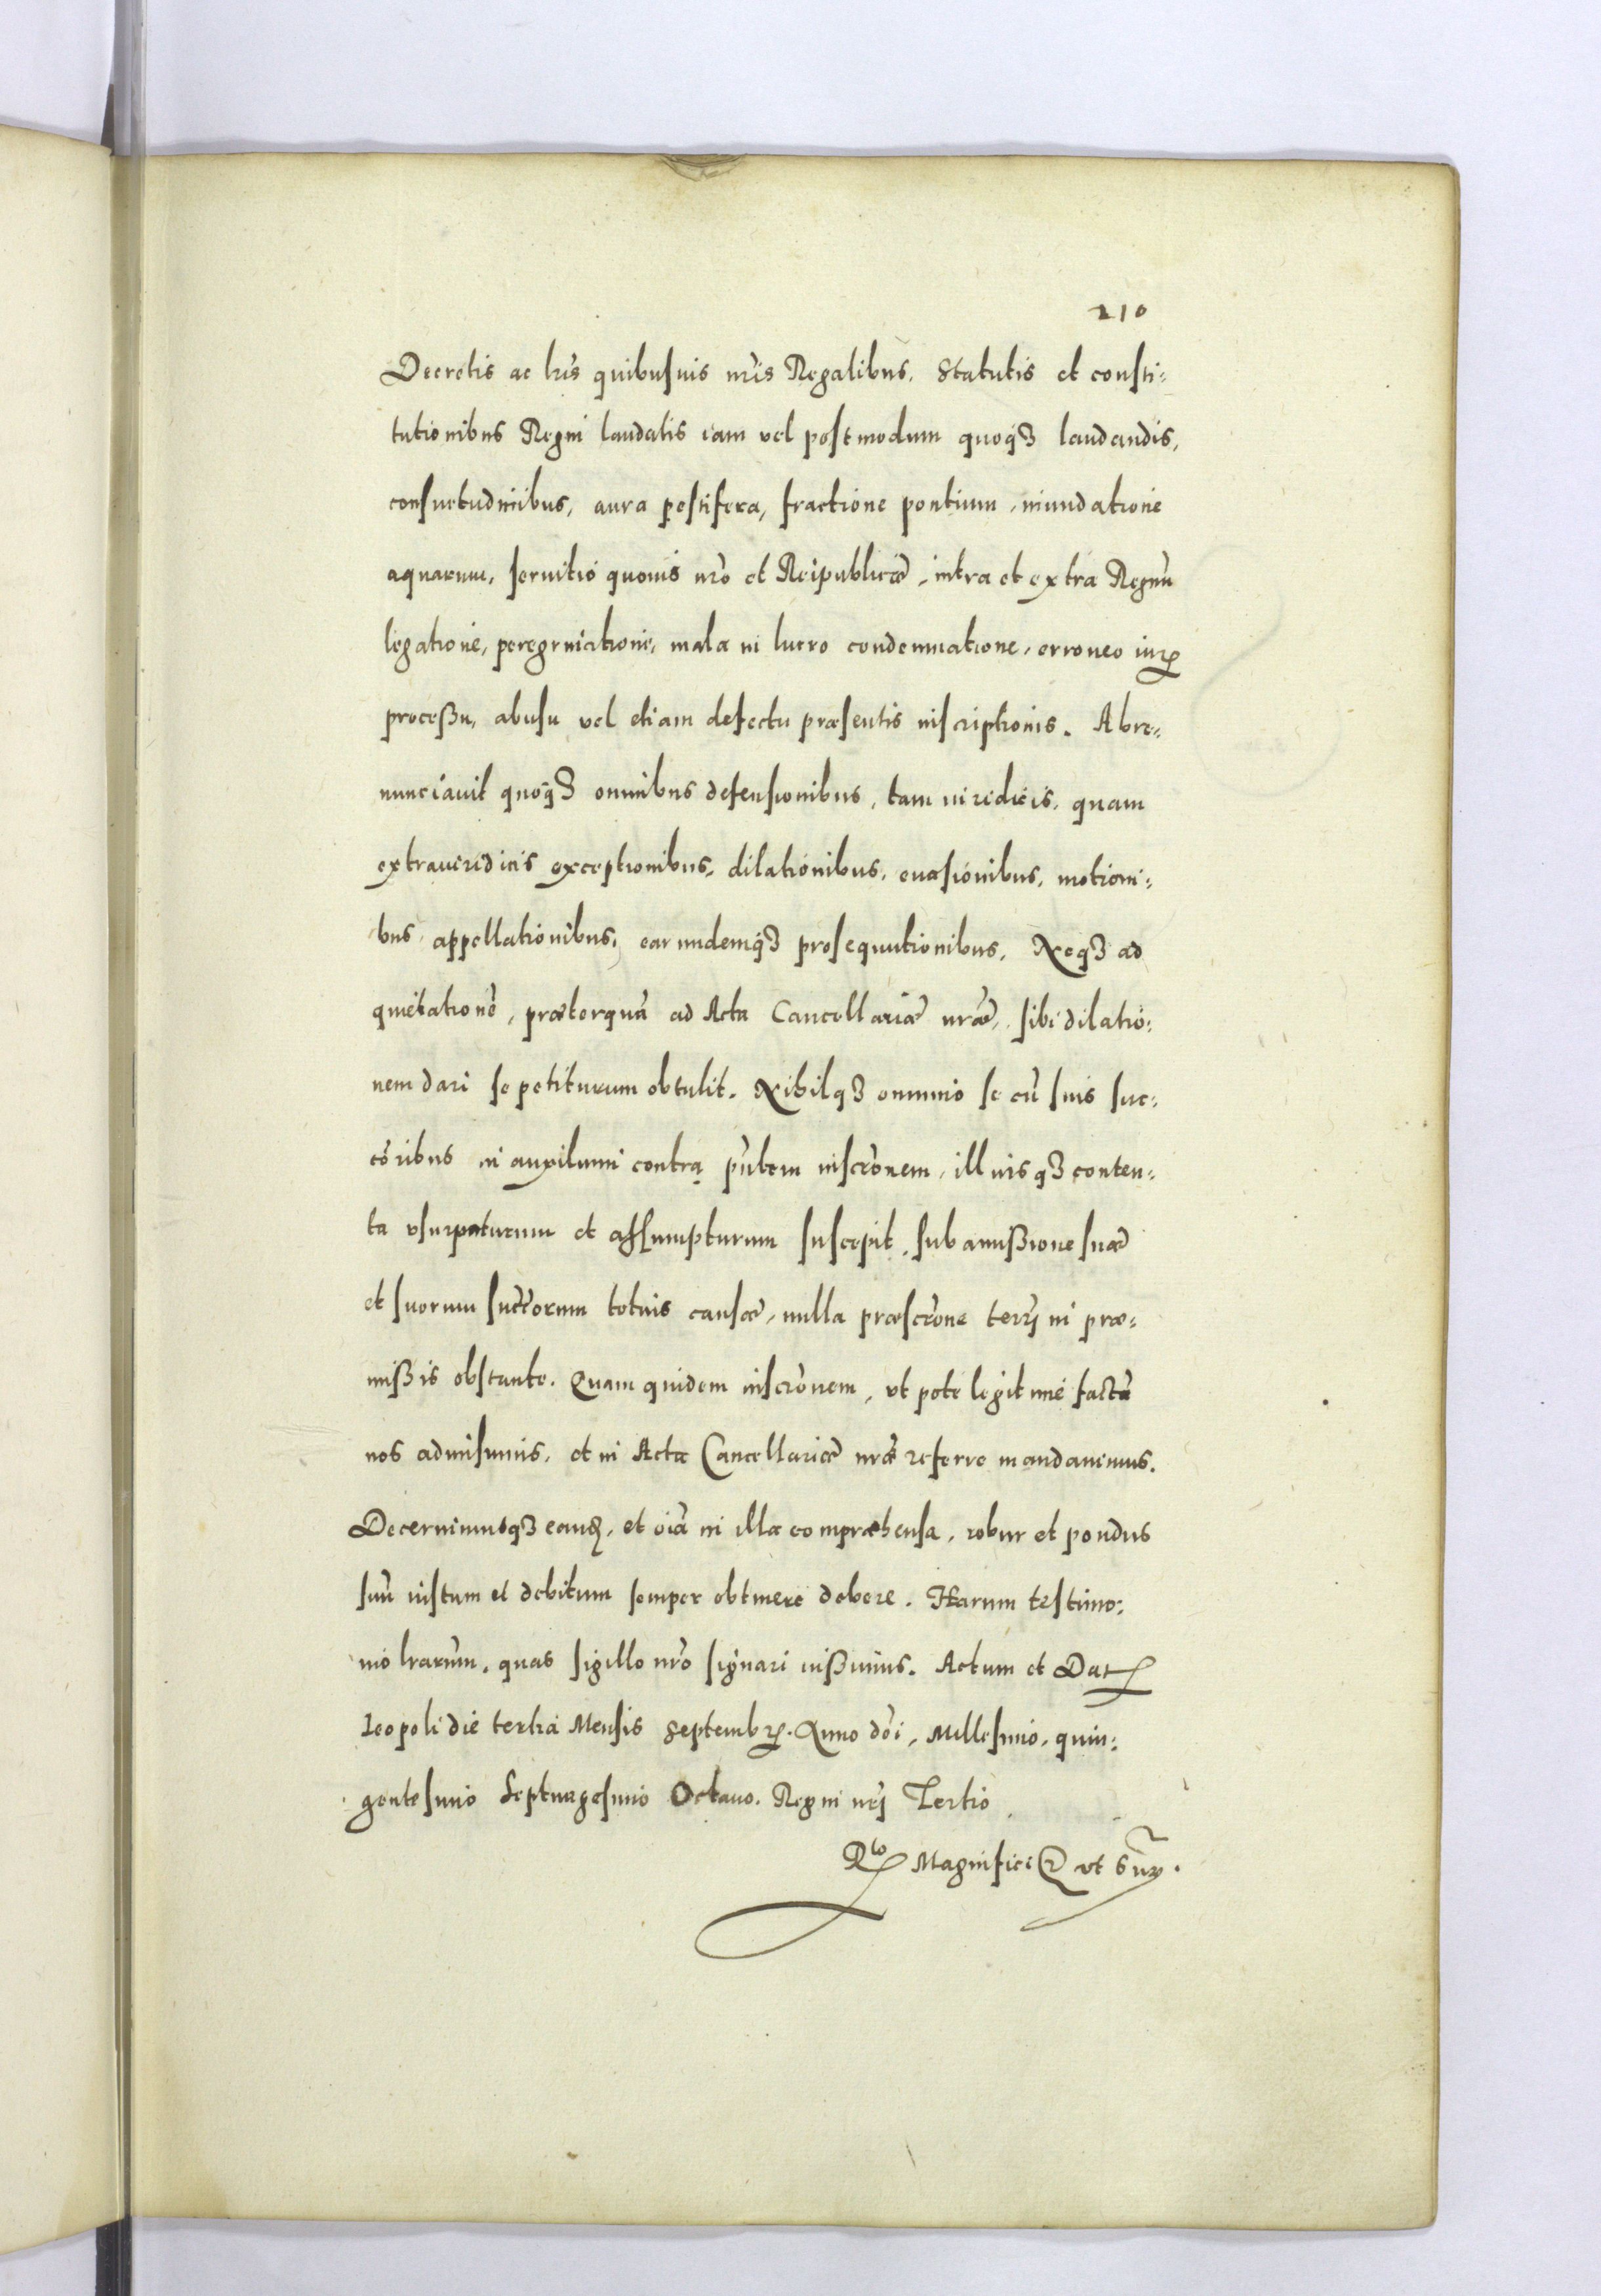 210
Decretis ac lr̃is quibusuis nr̃is Regalibus. Statutis et consti-
tutionibus Regni laudatis iam vel postmodum quoqȝ laudandis,
consuetudinibus, aura pestifera, fractione pontium, inundatione
aquarum, seruitio quouis nr̃o et Reipublicæ, intra et extra Regnũ
legatione, peregrinatione, mala in lucro condemnatione, erroneo iurꝭ
processu, abusu vel etiam defectu præsentis inscriptionis. Abre-
nunciauit quoqȝ omnibus defensionibus, tam iuridicis, quam
extraiuridicis exceptionibus, dilationibus, euasionibus, motioni-
bus, appellationibus, earundemqȝ prosequutionibus. Neqȝ ad
quietationẽ, præterquã ad Acta Cancellariæ nr̃æ, sibi dilatio-
nem dari se petiturum obtulit. Nihilqȝ omnino se cũ suis suc-
cõribus in auxilium contra pñtem inscrõnem, illiusqȝ conten-
ta vsurpaturum et assumpturum suscepit, sub amissione suæ
et suorum succõrum totius causæ, nulla præscrõne terrj in præ-
missis obstante. Quam quidem inscrõnem, vt pote legitime factã
nos admisimus, et in Acta Cancellariæ nr̃æ referre mandauimus.
Decernimusqȝ eandꝫ, et oĩa in illa compræhensa, robur et pondus
suũ iustum et debitum semper obtinere debere. Harum testimo-
nio lrarũm, quas sigillo nr̃o signari iussimus. Actum et Datꝭ
Leopoli die tertia Mensis Septembrꝭ. Anno dõi, Millesimo, quin-
gentesimo Septuagesimo Octauo. Regni nr̃j Tertio
Rlõ Magnifici &c vt supr̃.